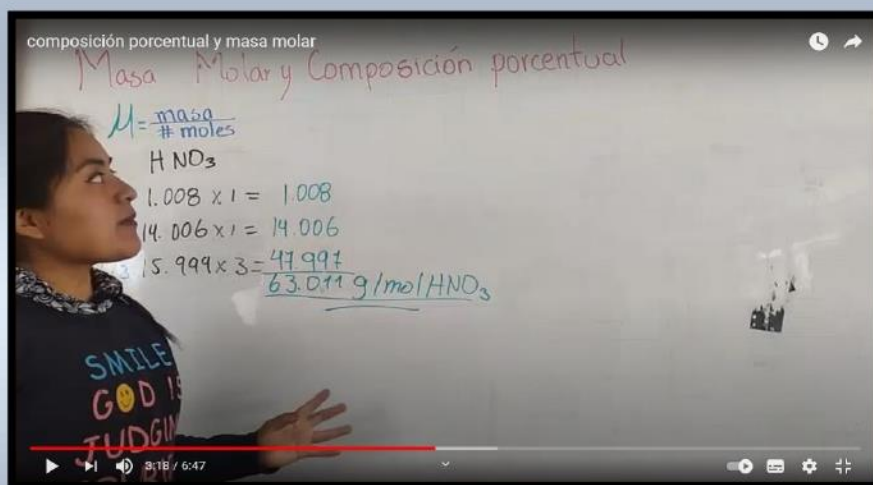 composición porcentual y masa molar
Masa Molar y Composición porcentual
M = masa / # moles
H NO₃
1.008 x 1 = 1.008
14.006 x 1 = 14.006
3 15.999 x 3 = 47.997
63.011 g/mol HNO₃
SMILE
GOD IS
JUDGIN
3:18 / 6:47